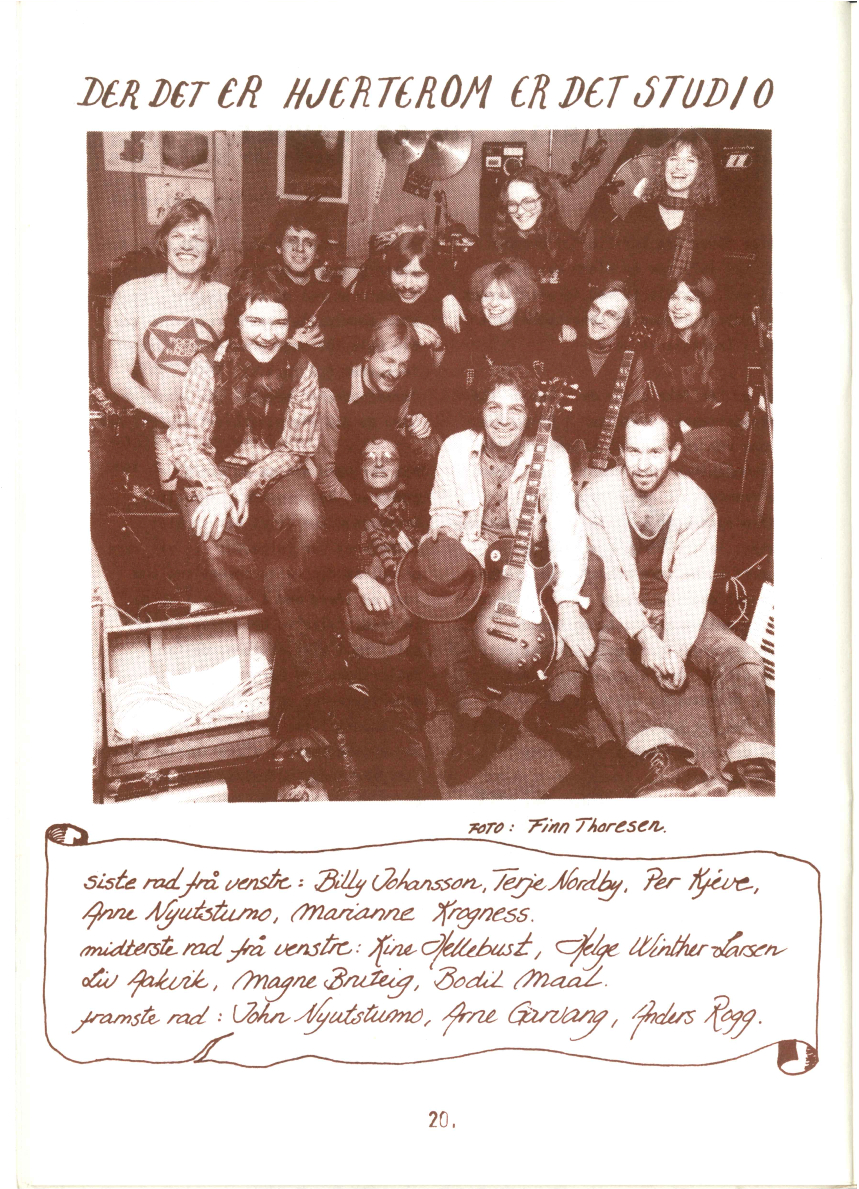 DER DET ER HJERTEROM ER DET STUDIO
FOTO: Finn Thoresen.
siste rad frå venstre: Billy Johansson, Terje Nordby, Per Kjeve,
Anne Nyutstumo, Marianne Krogness.
midterste rad frå venstre: Kine Hellebust, Helge Winther-Larsen
Liv Aakvik, Magne Bruteig, Bodil Maal.
framste rad: John Nyutstumo, Arne Garvang, Anders Rogg.
20.